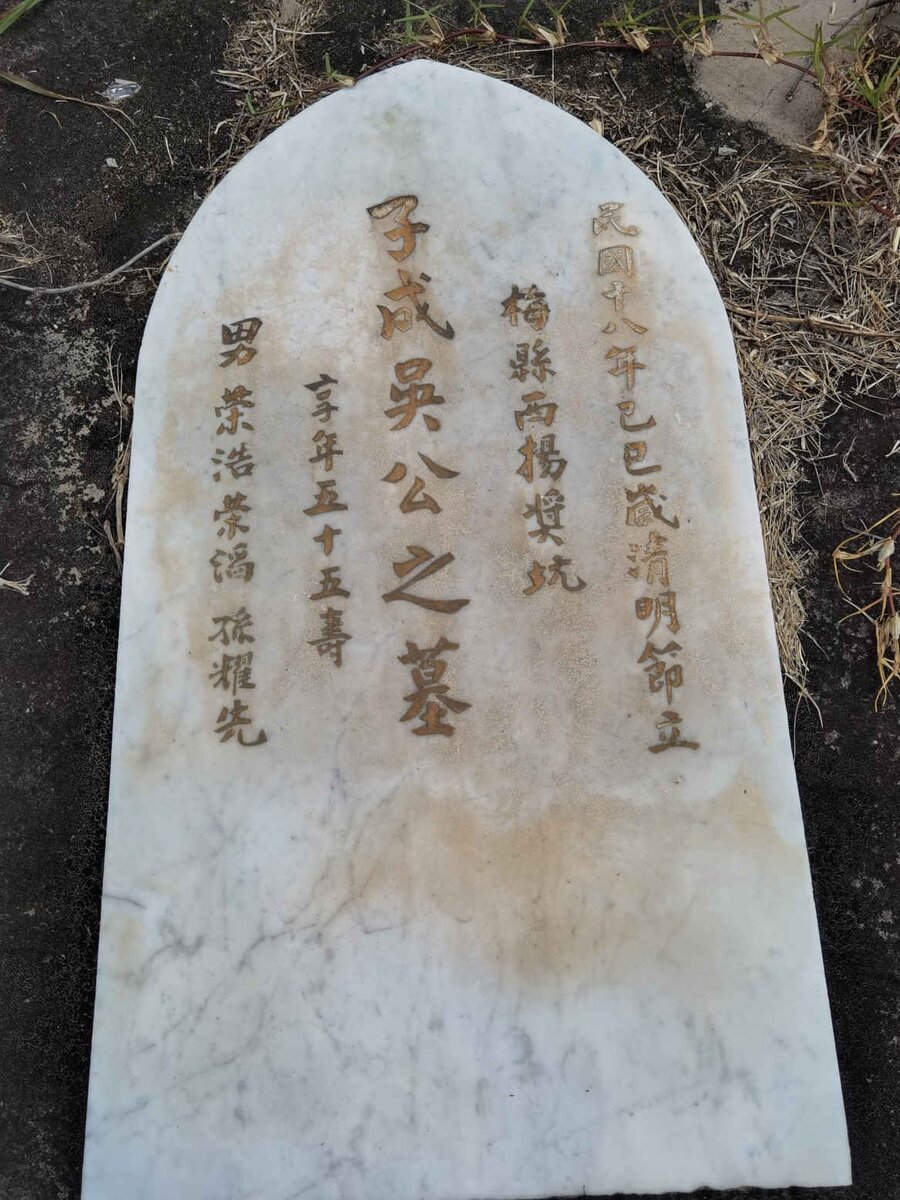 民國十八年己巳歲清明節立
梅縣西揚奨坑
子成吳公之墓
享年五十五壽
男榮浩榮滔 孫耀先